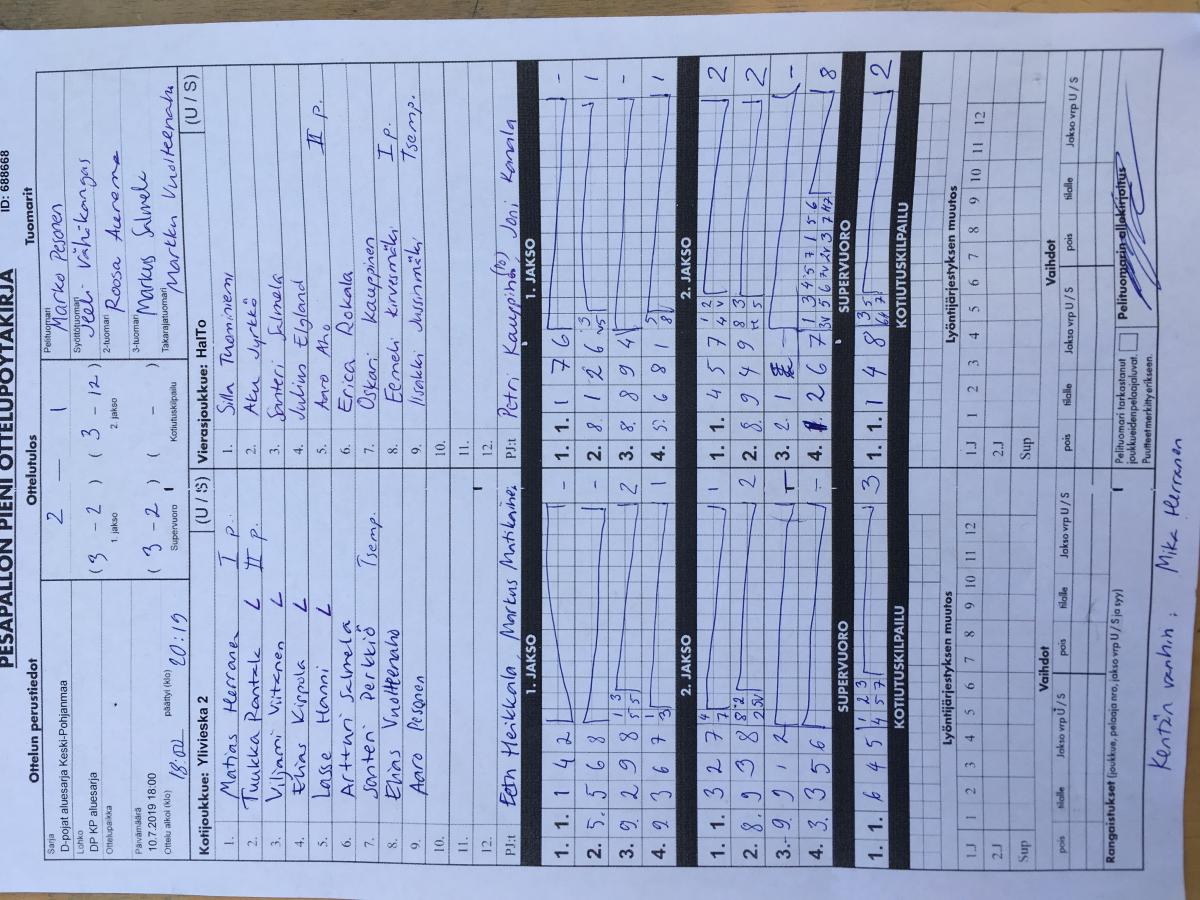 PESÄPALLON PIENI OTTELUPÖYTÄKIRJA
ID: 688668
Ottelun perustiedot
Sarja
D-pojat aluesarja Keski-Pohjanmaa
Lohko
DP KP aluesarja
Ottelupaikka
Päivämäärä
10.7.2019 18:00
Ottelu alkoi (klo) 18:02 päättyi (klo) 20:19
Ottelutulos
2 — 1
( 3 - 2 ) ( 3 - 12 )
1. jakso 2. jakso
( 3 - 2 ) ( - )
Supervuoro Kotiutuskilpailu
Tuomarit
Pelituomari
Marko Pesonen
Syöttötuomari
Jeeli Vähäkangas
2-tuomari
Roosa
3-tuomari
Markus
Takarajatuomari
Markku Vuolteenaho
Kotijoukkue: Ylivieska 2 (U / S)
1. Matias Herranen I p.
2. Tuukka Rantak L II p.
3. Viljami Viitanen L
4. Elias Kippola L
5. Lasse Hanni L
6. Artturi Salmela
7. Santeri Perkkiö Tsemp.
8. Elias Vuolteenaho
9. Aaro Pesonen
10.
11.
12.
PJ:t Petri Heikkala, Markus Matikainen
Vierasjoukkue: HalTo (U / S)
1. Silla Tuominiemi
2. Aku Jyrkkä
3. Santeri Salmela
4. Julius Egland
5. Aaro Aho II p.
6. Erica Rokala
7. Oskari Kauppinen
8. Eemeli Kirvesmäki I p.
9. Iisakki Jussinmäki Tsemp.
10.
11.
12.
PJ:t Petri Kauppinen, Joni Kanala
1. JAKSO
1. 1. 1 4 2 -
2. 5. 5 6 8 -
3. 9. 2 9 8 2
4. 9 3 6 7 1
2. JAKSO
1. 1. 3 2 7 1
2. 8. 9 3 8 2
3. 9. 9 1 2 -
4. 3. 3 5 6 -
SUPERVUORO
1. 1. 6 4 5 3
KOTIUTUSKILPAILU
1. JAKSO
1. 1. 1 7 6 -
2. 8 1 2 6 1
3. 8. 8 9 4 -
4. 5. 6 8 1 1
2. JAKSO
1. 1. 4 5 7 2
2. 8. 9 4 9 2
3. 2. 1 -
4. 2 6 7 8
SUPERVUORO
1. 1. 1 4 8 2
KOTIUTUSKILPAILU
Lyöntijärjestyksen muutos
1.J 1 2 3 4 5 6 7 8 9 10 11 12
2.J
Sup
Vaihdot
pois tilalle Jakso vrp U / S pois tilalle Jakso vrp U / S
Lyöntijärjestyksen muutos
1.J 1 2 3 4 5 6 7 8 9 10 11 12
2.J
Sup
Vaihdot
pois tilalle Jakso vrp U / S pois tilalle Jakso vrp U / S
Rangaistukset (joukkue, pelaaja nro, jakso vrp U / S ja syy)
Pelituomari tarkastanut
joukkueidenpelaajaluvat.
Puutteet merkitty erikseen.
Pelituomarin allekirjoitus
Kentän vanhin: Mika Herranen